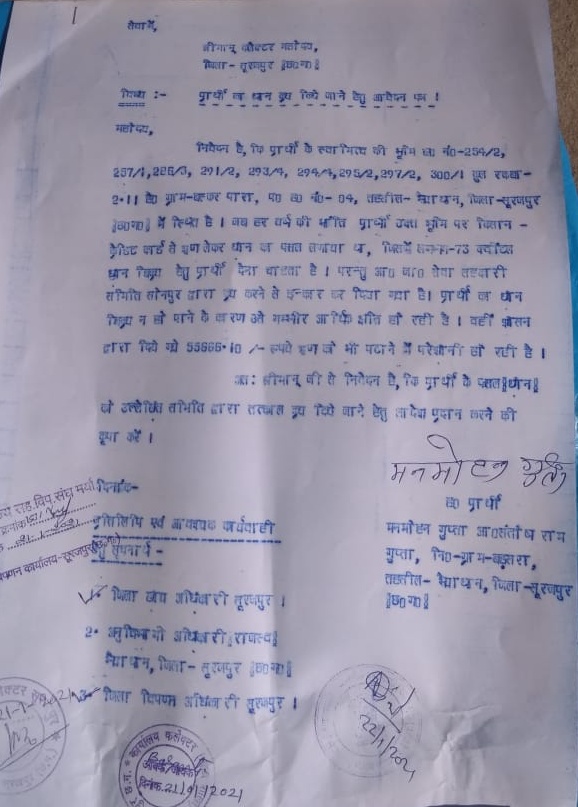 सेवामें,
श्रीमान् कलेक्टर महोदय,
जिला- सूरजपुर [छ0ग0]
विषय :- प्रार्थी का धान क्रय किये जाने हेतु आवेदन पत्र ।
महोदय,
निवेदन है, कि प्रार्थी के स्वामित्व की भूमि ख0 नं0-254/2,
257/1,286/3, 291/2, 293/4, 294/4,295/2,297/2, 300/1 कुल रकबा-
2.11 हे0 ग्राम- पारा, प0 ह0 नं0- 04, तहसील- भैयाथान, जिला-सूरजपुर
[छ0ग0] में स्थित है । जब हर वर्ष की भांति प्रार्थी उक्त भूमि पर किसान -
क्रेडिट कार्ड से ऋण लेकर धान का फसल लगाया था, जिसमें लगभग-73 क्वींटल
धान विक्रय हेतु प्रार्थी देना चाहता है । परन्तु आ0 जा0 सेवा सहकारी
समिति सोनपुर द्वारा क्रय करने से इन्कार कर दिया गया है। प्रार्थी का धान
विक्रय न हो पाने के कारण उसे गम्भीर आर्थिक क्षति हो रही है । वहीं शासन
द्वारा दिये गये 55665.10 /- रूपये ऋण को भी पटाने में परेशानी हो रही है ।
अतः श्रीमान् जी से निवेदन है, कि प्रार्थी के फसल[धान]
को उल्लेखित समिति द्वारा तत्काल क्रय किये जाने हेतु आदेश प्रदान करने की
कृपा करें ।
मनमोहन गुप्ता
दिनांक-
ह0 प्रार्थी
प्रतिलिपि एवं आवश्यक कार्यवाही
हेतु सूचनार्थ -
मनमोहन गुप्ता आ0संतोष राम
गुप्ता, नि0-ग्राम-बड़सरा,
तहसील- भैयाथान, जिला-सूरजपुर
[छ0ग0]
जिला खाद्य अधिकारी सूरजपुर ।
2. अनुविभागी अधिकारी[राजस्व]
भैयाथान, जिला- सूरजपुर [छ0ग0]
3. जिला विपणन अधिकारी सूरजपुर ।
22/1/2021
कार्यालय कलेक्टर
दिनांक.21/01/2021